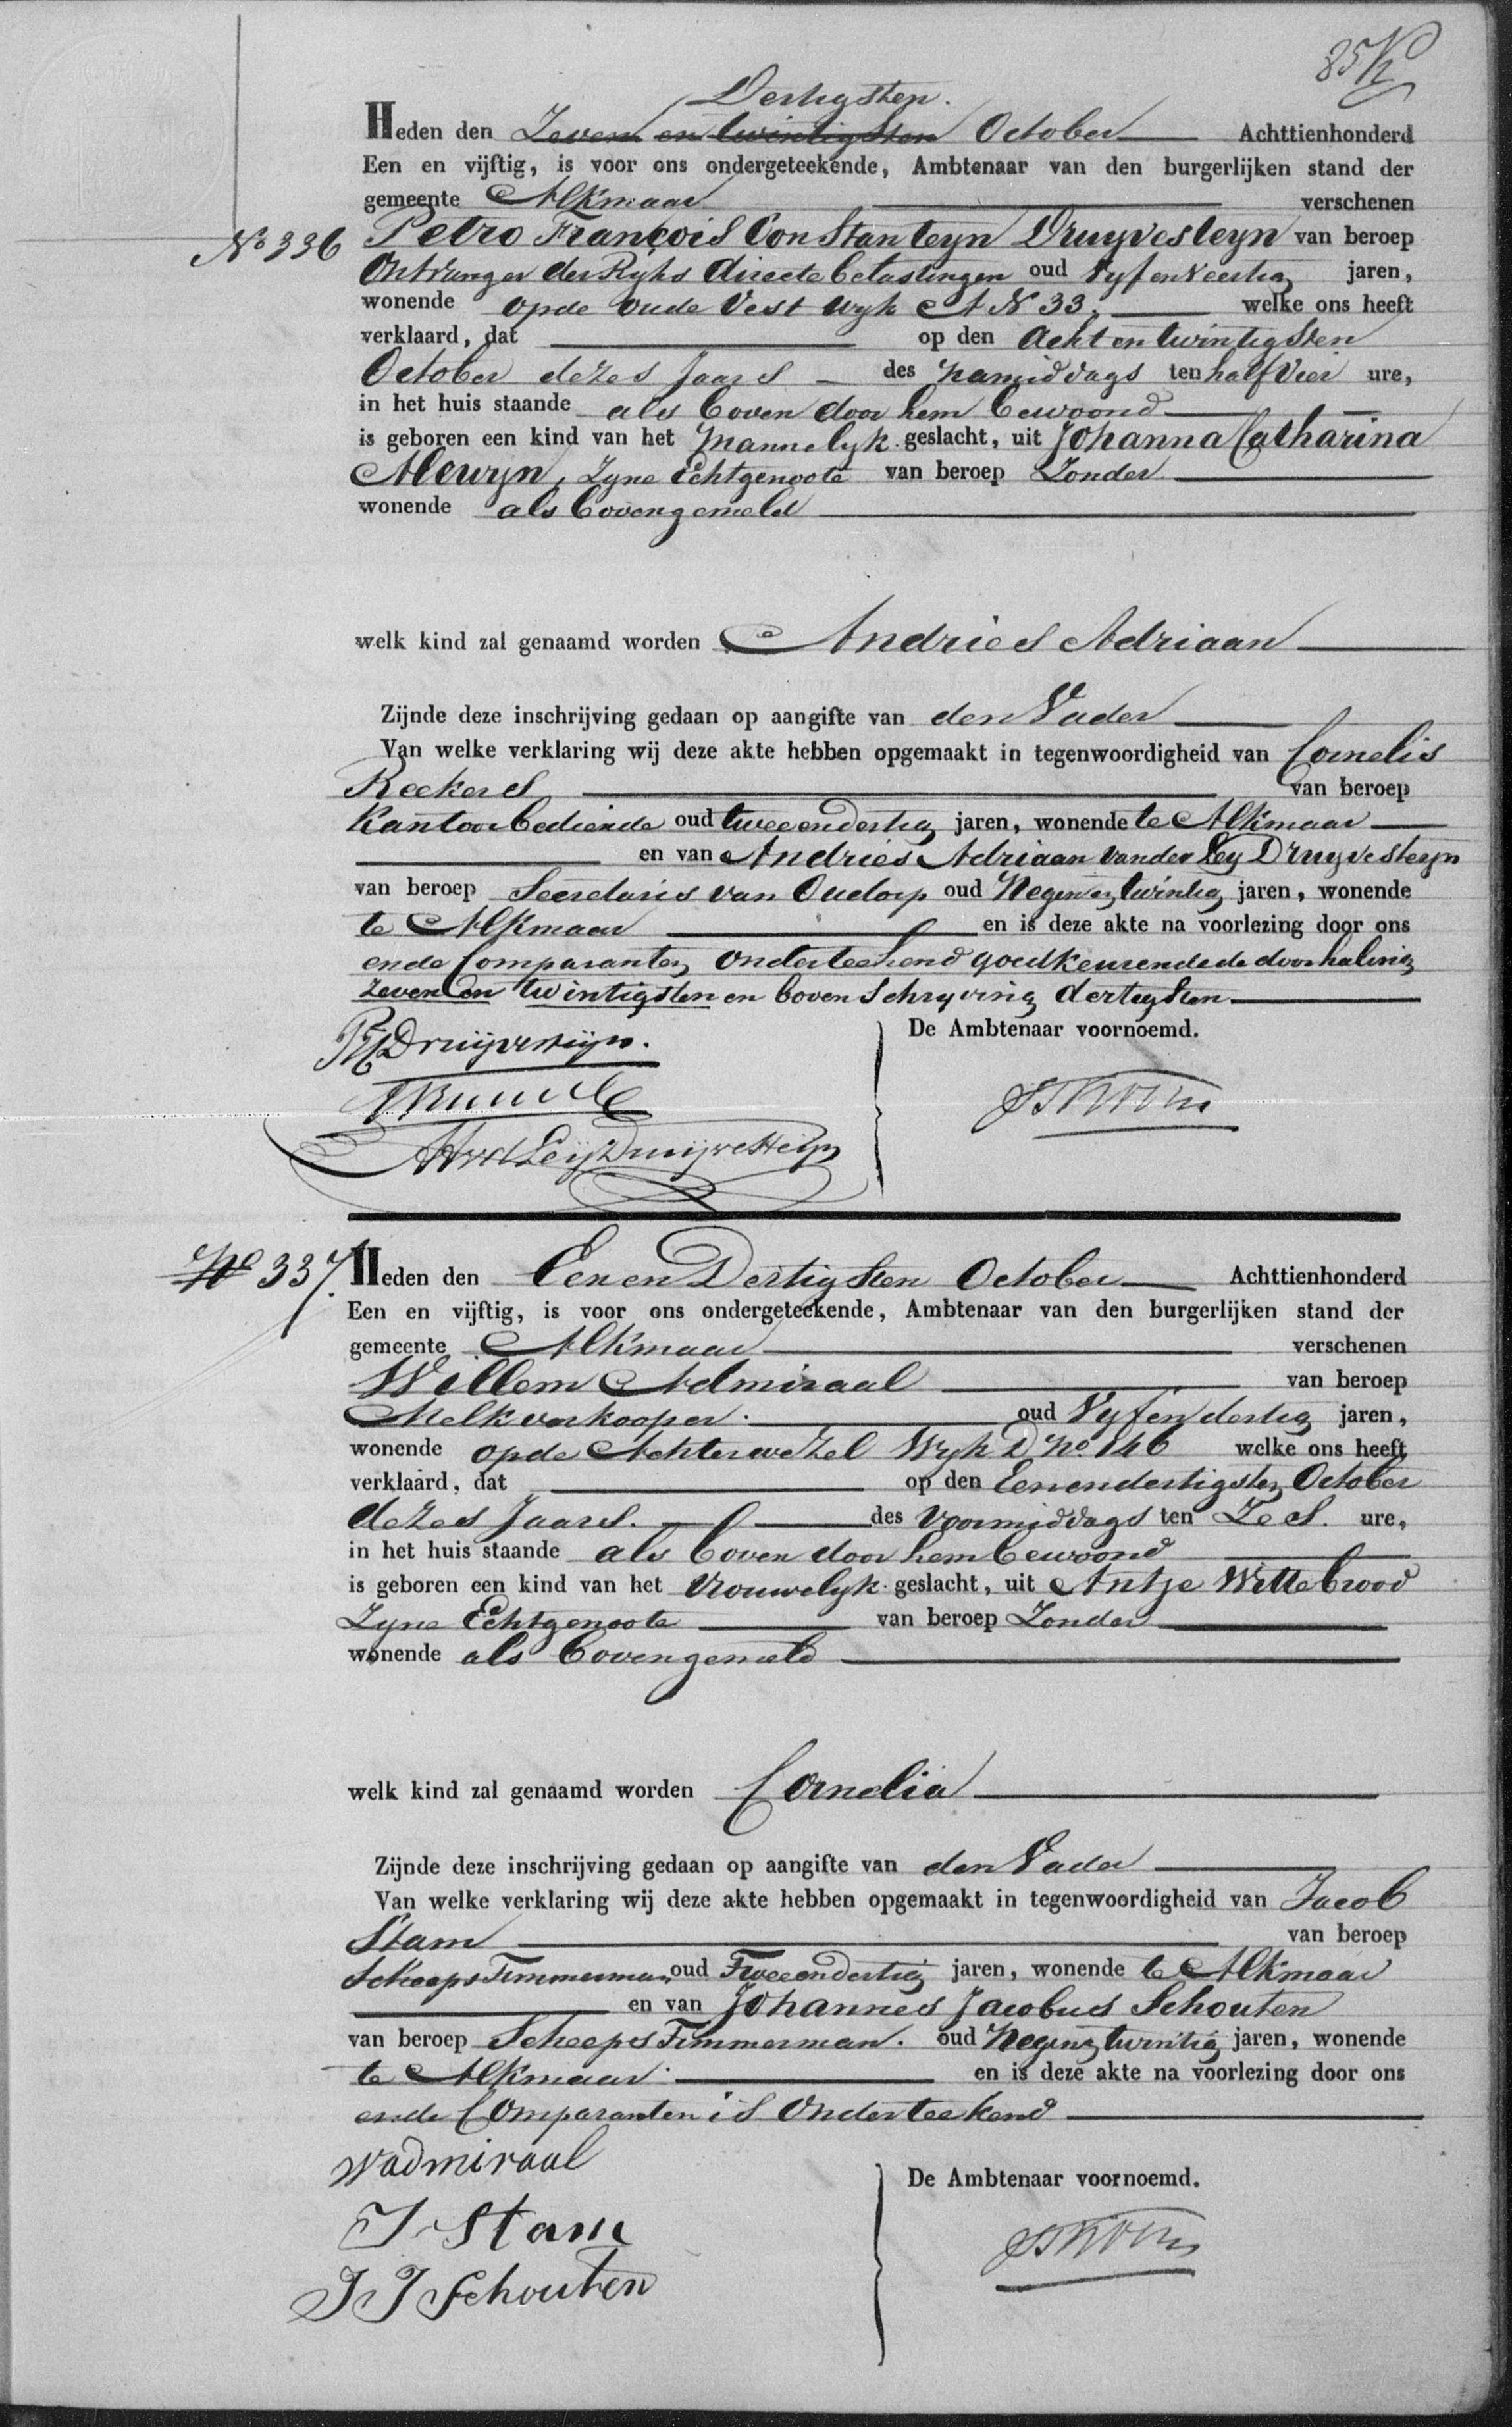 85
Dertigsten.
Heden den Zeven en twintigsten October Achttienhonderd
Een en vijftig, is voor ons ondergeteekende, Ambtenaar van den burgerlijken stand der
gemeente Alkmaar verschenen
No 336 Petro François Constanteyn Druyvesteyn van beroep
Ontvanger der Ryks directe belastingen oud Vyf en Veertig jaren,
wonende op de Oude Vest Wyk A No 33, welke ons heeft
verklaard, dat op den Acht en twintigsten
October dezes Jaars des namiddags ten half Vier ure,
in het huis staande als boven door hem bewoond
is geboren een kind van het Mannelyk geslacht, uit Johanna Catharina
Mewyn, Zyne Echtgenoote van beroep Zonder
wonende als bovengemeld
welk kind zal genaamd worden Andries Adriaan
Zijnde deze inschrijving gedaan op aangifte van den Vader
Van welke verklaring wij deze akte hebben opgemaakt in tegenwoordigheid van Cornelis
Reekers van beroep
Kantoorbediende oud twee en dertig jaren, wonende te Alkmaar
en van Andries Adriaan van der Ley Druyvesteyn
van beroep Secretaris van Oudorp oud Negen en twintig jaren, wonende
te Alkmaar en is deze akte na voorlezing door ons
en de Comparanten onderteekend goedkeurende de doorhaling
zeven en twintigsten en bovenschryving dertigsten
Druijvesteijn.
De Ambtenaar voornoemd.
AA vd Leij Druijvesteijn
No 337. Heden den Een en Dertigsten October Achttienhonderd
Een en vijftig, is voor ons ondergeteekende, Ambtenaar van den burgerlijken stand der
gemeente Alkmaar verschenen
Willem Admiraal van beroep
Melkverkooper. oud Vyf en dertig jaren,
wonende op de Achterwezel Wyk D No. 146 welke ons heeft
verklaard, dat op den Eenendertigsten October
dezes Jaars. des Voormiddags ten Zes. ure,
in het huis staande als boven door hem bewoond
is geboren een kind van het Vrouwelyk geslacht, uit Antje Wittebrood
Zyne Echtgenoote van beroep Zonder
wonende als bovengemeld
welk kind zal genaamd worden Cornelia
Zijnde deze inschrijving gedaan op aangifte van den Vader
Van welke verklaring wij deze akte hebben opgemaakt in tegenwoordigheid van Jacob
Stam van beroep
Scheeps Timmerman oud Tweeendertig jaren, wonende te Alkmaar
en van Johannes Jacobus Schouten
van beroep Scheeps Timmerman. oud Negen en twintig jaren, wonende
te Alkmaar. en is deze akte na voorlezing door ons
en de Comparanten is Onderteekend
W admiraal
De Ambtenaar voornoemd.
J Stam
J J Schouten